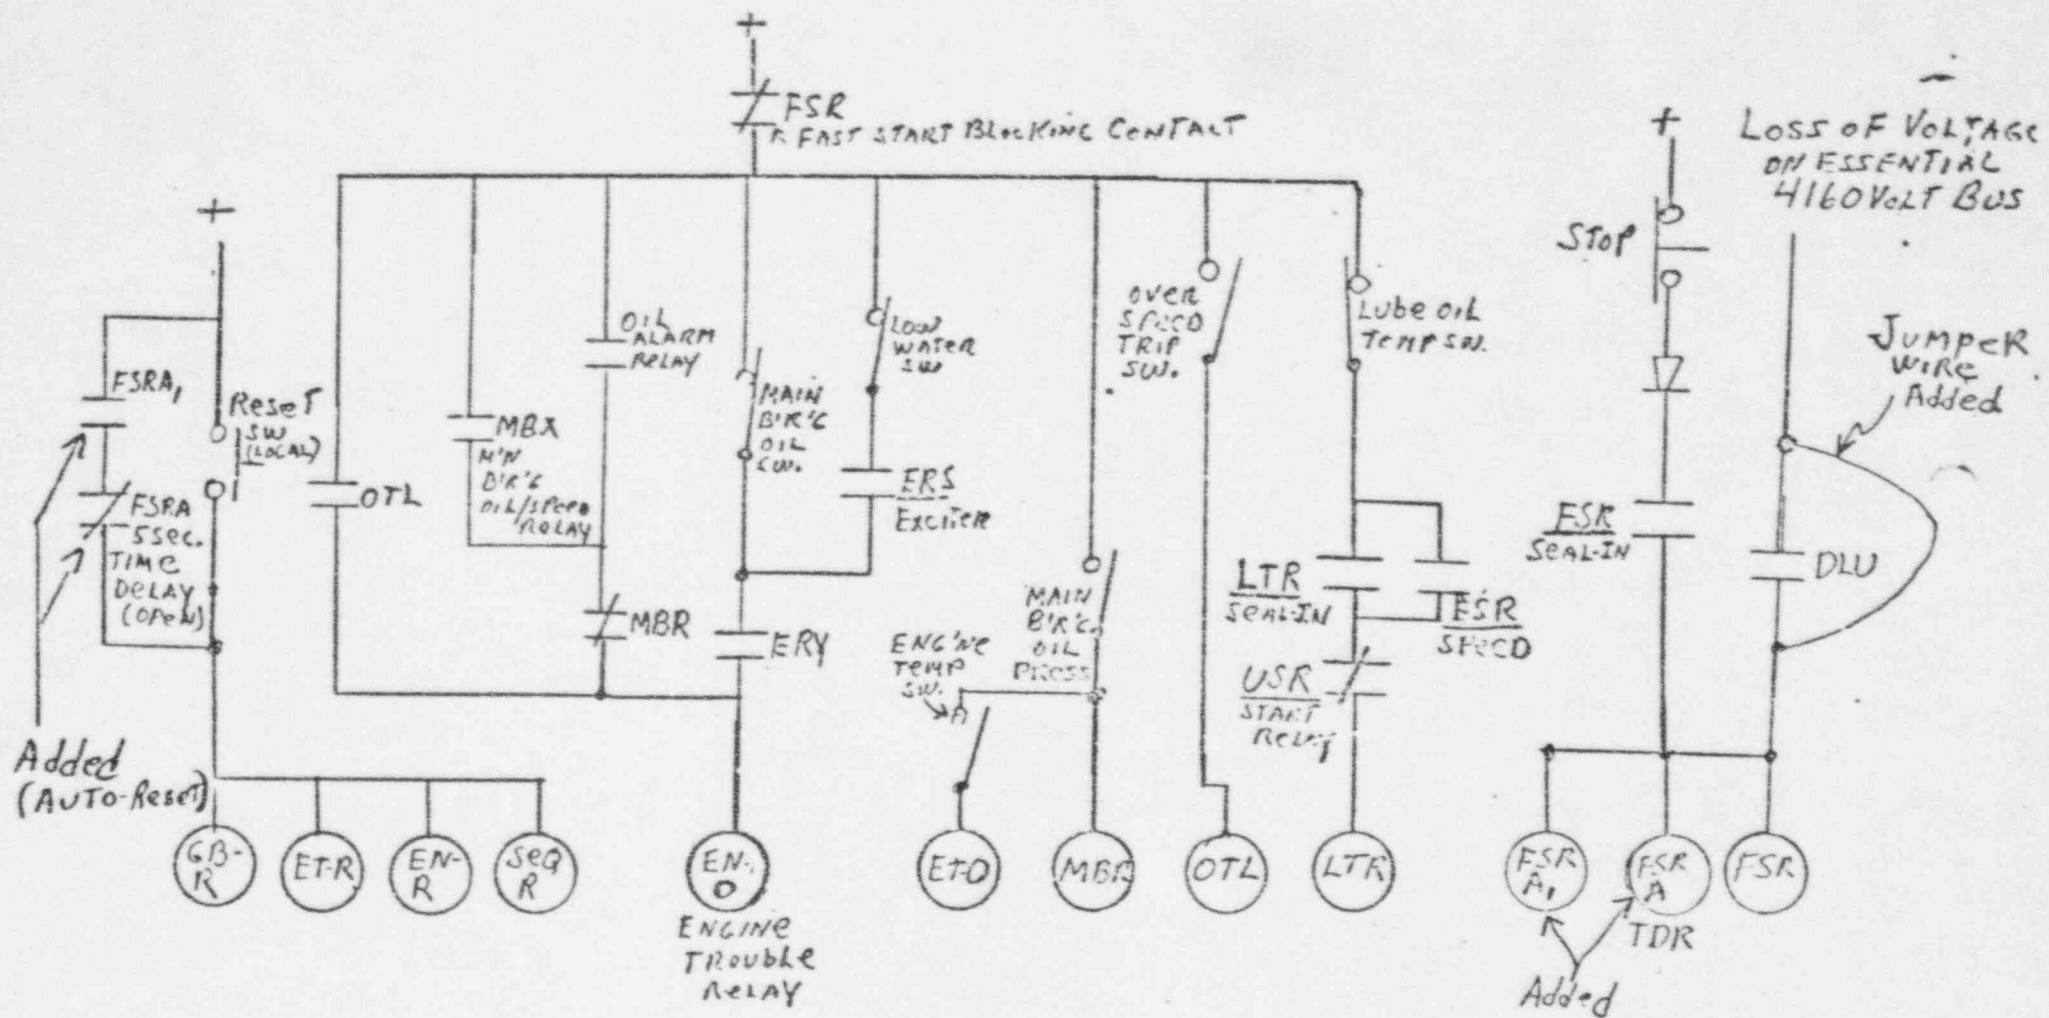 +
FSR
FAST START BLOCKING CONTACT
+
LOSS OF VOLTAGE
ON ESSENTIAL
4160 VOLT BUS
+
STOP
JUMPER
WIRE
Added
FSRA1
Reset
SW
(LOCAL)
FSRA
5 sec.
TIME
DELAY
(OPEN)
OTL
MBX
M'N
B'R'G
OIL/SPEED
RELAY
OIL
ALARM
RELAY
MBR
MAIN
B'R'G
OIL
SW.
LOW
WATER
SW
ERS
EXCITER
ERY
ENG'NE
TEMP
SW.
MAIN
B'R'G
OIL
PRESS
OVER
SPEED
TRIP
SW.
Lube OIL
TEMP SW.
LTR
SEAL-IN
ESR
SPEED
USR
START
Relay
FSR
SEAL-IN
DLU
Added
(AUTO-Reset)
GB-
R
ET-R
EN-
R
SEQ
R
EN-
O
ENGINE
TROUBLE
RELAY
ET-O
MBR
OTL
LTR
FSR
A1
FSR
A
FSR
TDR
Added